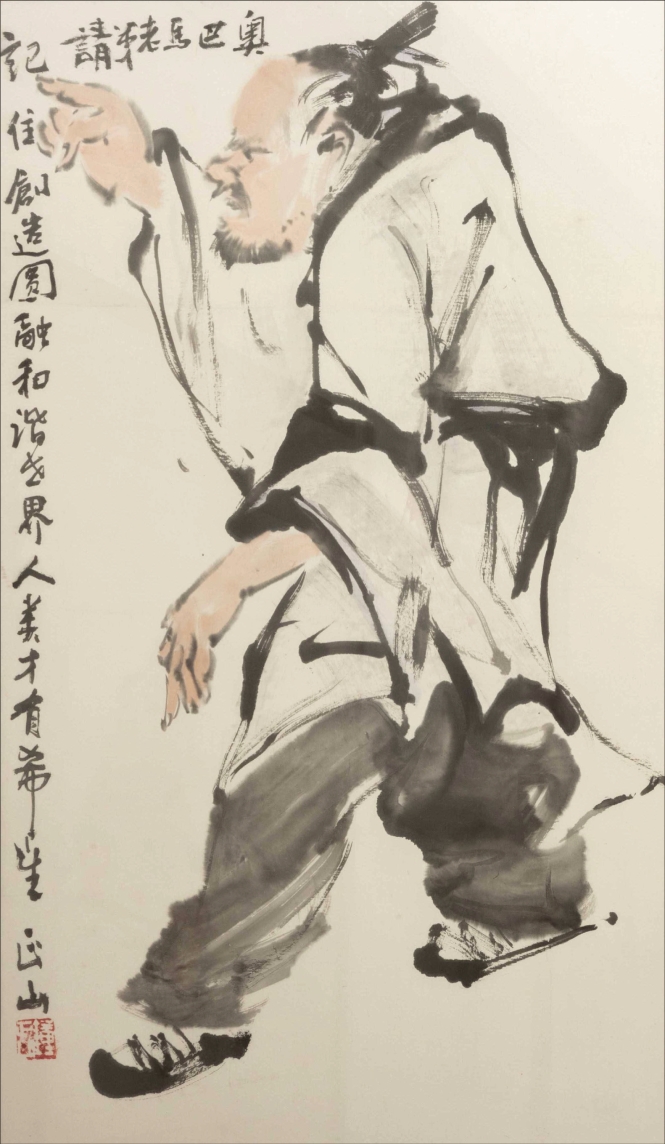 奥巴馬老弟請
記住創造圓融和谐世界人类才有希望
正山